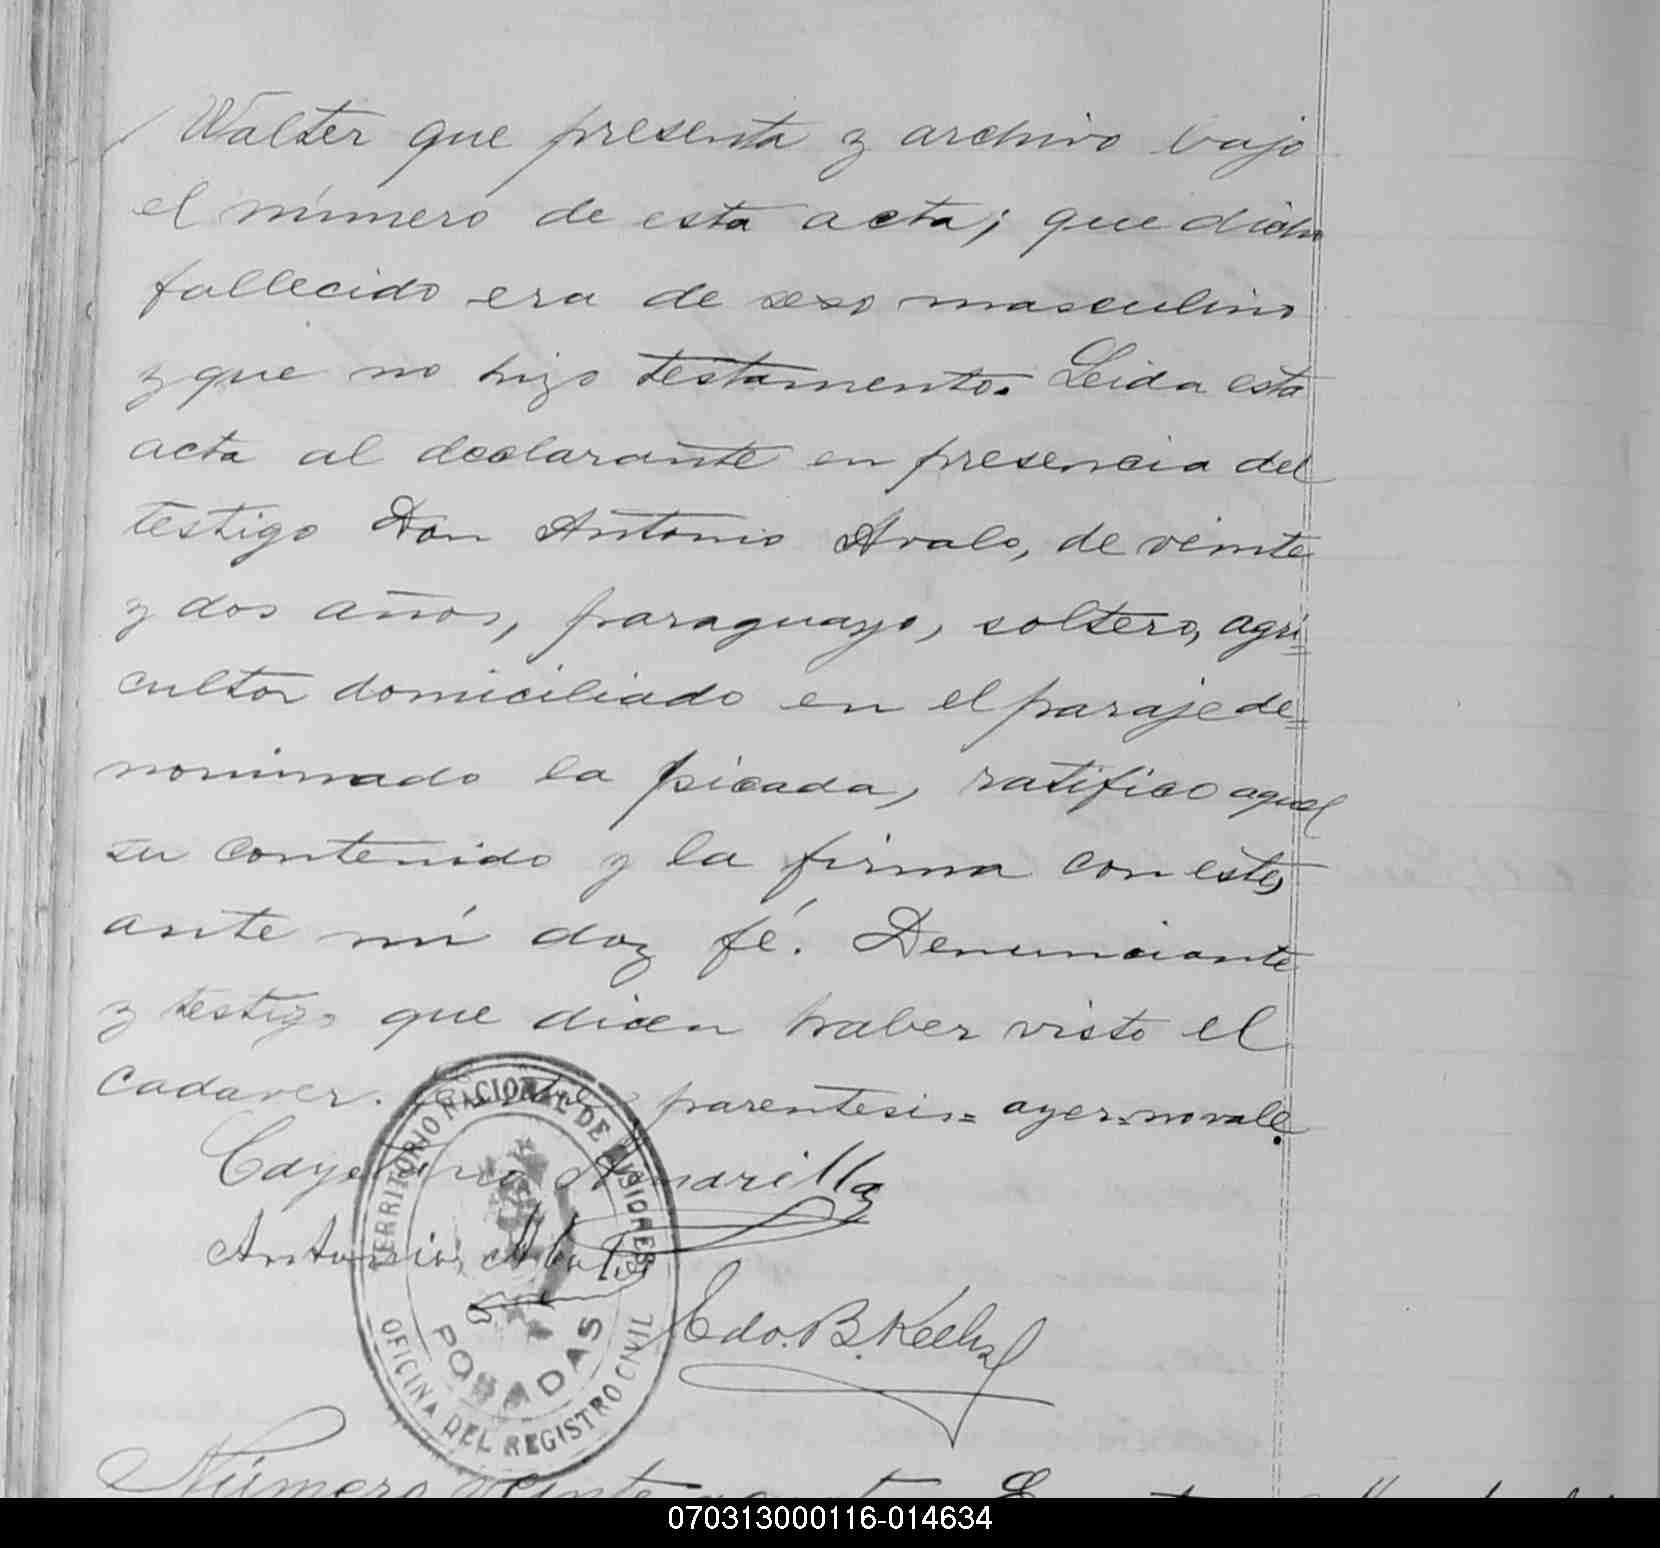 Walter que presenta y archivo bajo
el número de esta acta; que dicho
fallecido era de sexo masculino
y que no hizo testamento. Leida esta
acta al declarante en presencia del
testigo Don Antonio Avalo, de veinte
y dos años, paraguayo, soltero, agri=
cultor domiciliado en el paraje de=
nominado la picada, ratifico aquel
su contenido y la firma con este,
ante mí doy fé. Denunciante
y testigo que dicen haber visto el
cadaver. parentesis= ayer=no vale.
Cayetano Amarilla
Antonio
Edo. B.
TERRITORIO NACIONAL DE MISIONES
POSADAS
OFICINA DEL REGISTRO CIVIL
Número veinte
070313000116-014634